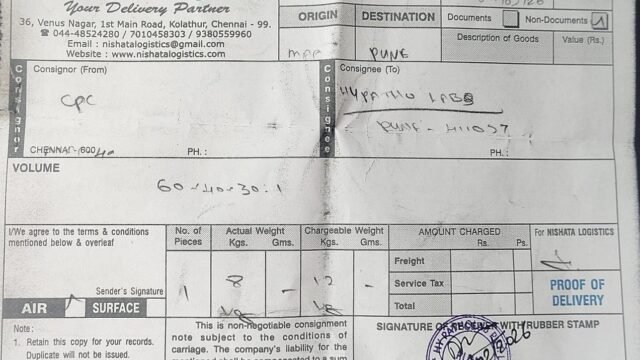 Your Delivery Partner
36, Venus Nagar, 1st Main Road, Kolathur, Chennai - 99.
☎ 044-48524280 / 7010458303 / 9380559960
Email : nishatalogistics@gmail.com
Website : www.nishatalogistics.com
ORIGIN
DESTINATION
PUNE
Documents
Non-Documents
Description of Goods
Value (Rs.)
Consignor
Consignor (From)
CPC
CHENNAI-600
PH. :
Consignee
Consignee (To)
LABS
PUNE - 411057
PH. :
VOLUME
60-40-30:1
I/We agree to the terms & conditions
mentioned below & overleaf
Sender's Signature
AIR
SURFACE
No. of
Pieces
1
Actual Weight
Kgs. Gms.
8 -
kg
Chargeable Weight
Kgs. Gms.
12 -
kg
AMOUNT CHARGED
Rs. Ps.
Freight
Service Tax
Total
For NISHATA LOGISTICS
PROOF OF
DELIVERY
Note :
1. Retain this copy for your records.
Duplicate will not be issued.
This is non-negotiable consignment
note subject to the conditions of
carriage. The company's liability for
SIGNATURE OF RECEIVER WITH RUBBER STAMP